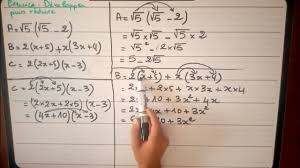 Exercice: Développer
puis réduire
A = √5 (√5 - 2)
B = 2(x+5) + x(3x+4)
C = 2(x+5)(x-3)
C = 2(x+5)(x-3)
= (2×x + 2×5)(x-3)
= (2x+10)(x-3)
A = √5 (√5 - 2)
= √5 × √5 - √5 × 2
= √5² - 2√5
= 5 - 2√5
B = 2(x+5) + x(3x+4)
+ 2×5 + x×3x + x×4
+ 10 + 3x² + 4x
+ 10 + 3x²
+ 10 + 3x²